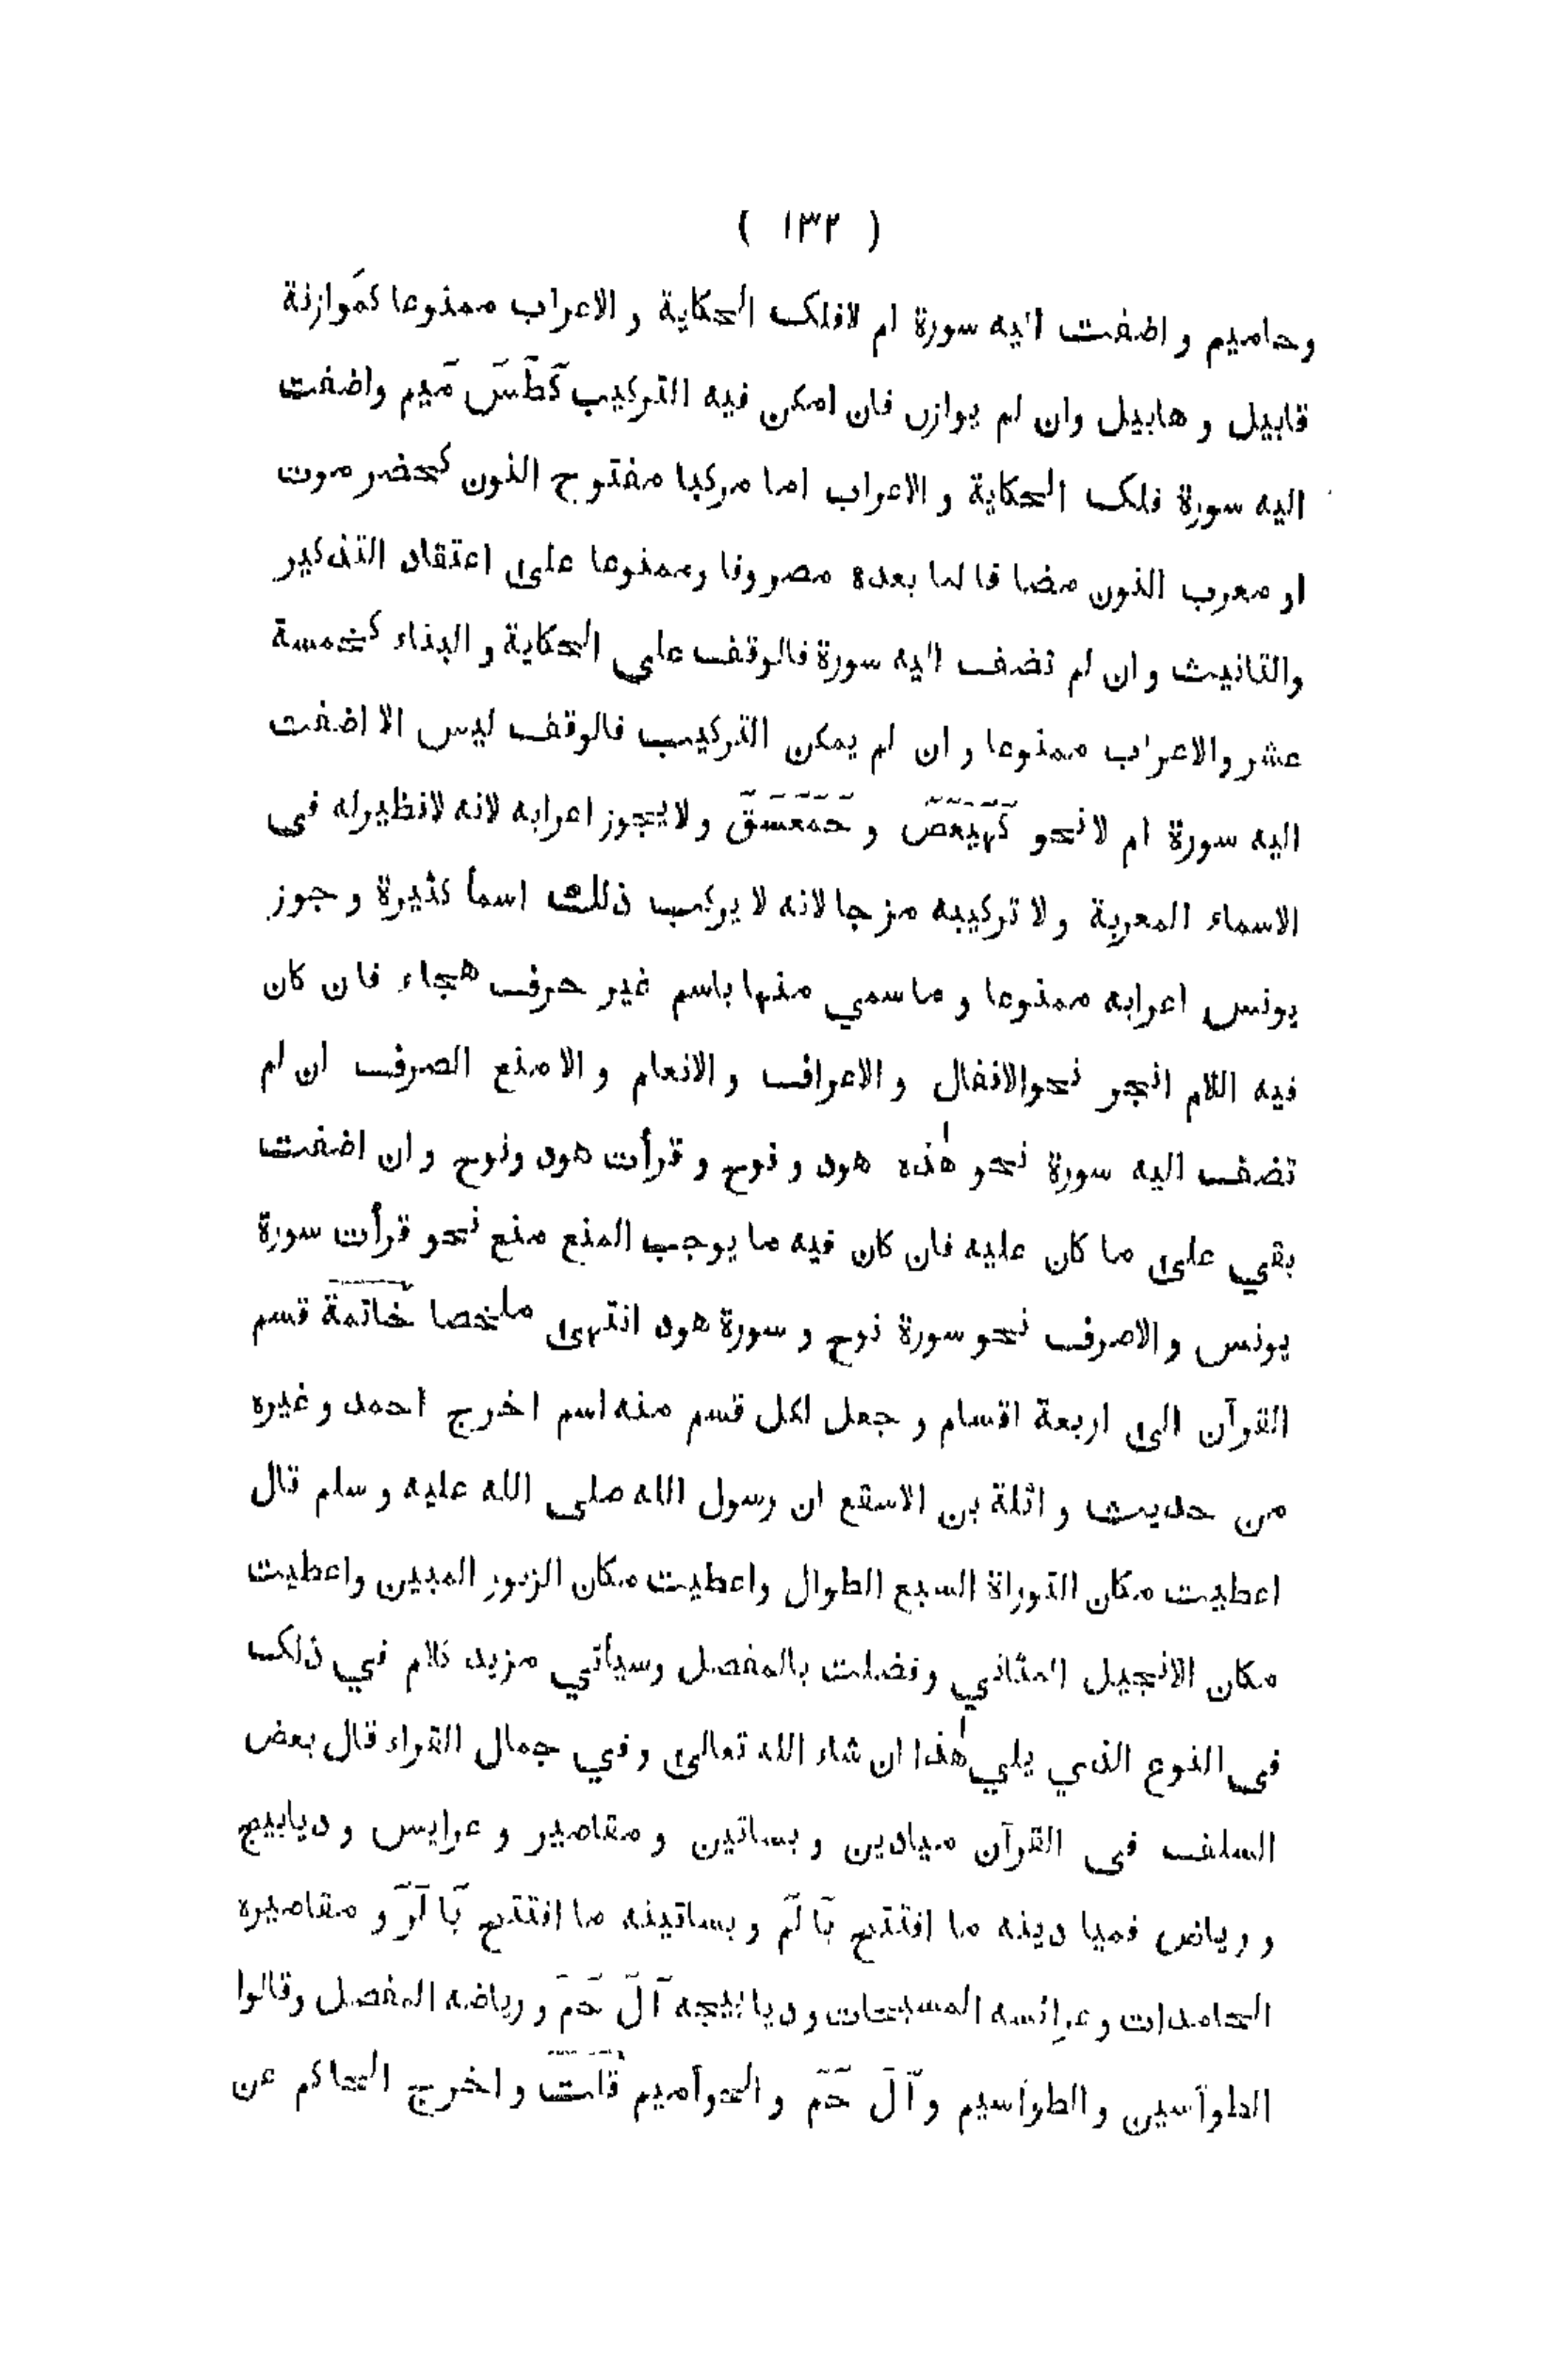 ( ١٣٢ )
وحاميم و اضفت اليه سورة ام لافلك الحكاية و الاعراب ممنوعا كموازنة
قابيل و هابيل وان لم يوازن فان امكن فيه التركيب كَطٓسٓ مٓيم واضفت
اليه سورة فلك الحكاية و الاعراب اما مركبا مفتوح النون كحضر موت
او معرب النون مضا فا لما بعده مصروفا وممنوعا على اعتقاد التذكير
والتانيث و ان لم تضف اليه سورة فالوقف علي الحكاية و البناء كخمسة
عشر والاعراب ممنوعا و ان لم يمكن التركيب فالوقف ليس الا اضفت
اليه سورة ام لا نحو كٓهٓيٰعٓصٓ و حٓمٓعٓسٓقٓ ولا يجوز اعرابه لانه لانظيرله فى
الاسماء المعربة ولا تركيبه مزجا لانه لا يركب ذلك اسمأ كثيرة وجوز
يونس اعرابه ممنوعا و ما سمي منها باسم غير حرف هجاء فان كان
فيه اللام انجر نحو الانفال و الاعراف و الانعام و الا منع الصرف ان لم
تضف اليه سورة نحو هٰذه هود و نوح و قرأت هود ونوح و ان اضفت
بقي على ما كان عليه فان كان فيه ما يوجب المنع منع نحو قرأت سورة
يونس و الاصرف نحو سورة نوح و سورة هود انتهى ملخصا خاتمة قسم
القرآن الى اربعة اقسام و جعل لكل قسم منه اسم اخرج احمد و غيره
من حديث و اثلة بن الاسقع ان رسول الله صلى الله عليه و سلم قال
اعطيت مكان التوراة السبع الطوال واعطيت مكان الزبور المبين واعطيت
مكان الانجيل المثاني وفضلت بالمفصل وسيأتي مزيد كلام في ذلك
فى النوع الذي يلي هٰذا ان شاء الله تعالى وفي جمال القراء قال بعض
السلف فى القرآن ميادين و بساتين و مقاصير و عرايس و ديابيج
و رياض فميا دينه ما افتتح بآ لٓمٓ و بساتينه ما افتتح بآ لٓرٓ و مقاصيره
الحامدات و عرائسه المسبحات و ديا بيجه آلٓ حٓمٓ و رياضه المفصل وقالوا
الطوآسين والطوآسيم و آلٓ حٓمٓ و الحوآميم قلت و اخرج الحاكم عن